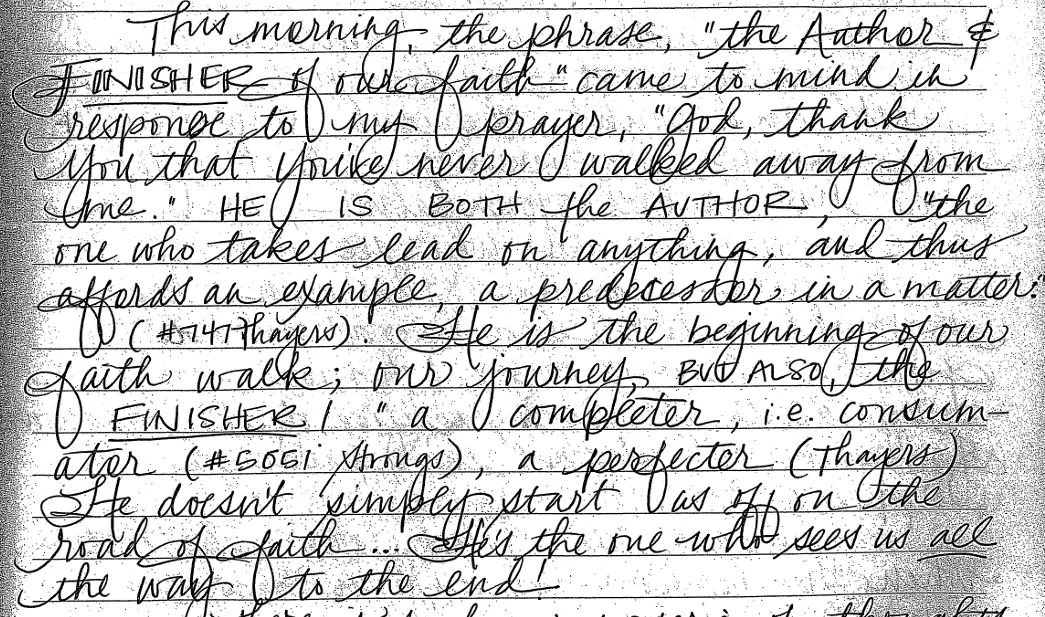 This morning, the phrase, "the Author &
FINISHER of our faith" came to mind in
response to my prayer, "God, thank
you that you've never walked away from
me." HE IS BOTH the AUTHOR, "the
one who takes lead on anything, and thus
affords an example, a predecessor in a matter:"
(#747 Thayers). He is the beginning of our
faith walk; our journey, BUT ALSO, the
FINISHER! "a completer, i.e. consum-
ator (#5051 Strongs), a perfecter (Thayers)
He doesn't simply start us off on the
road of faith... He's the one who sees us all
the way to the end!